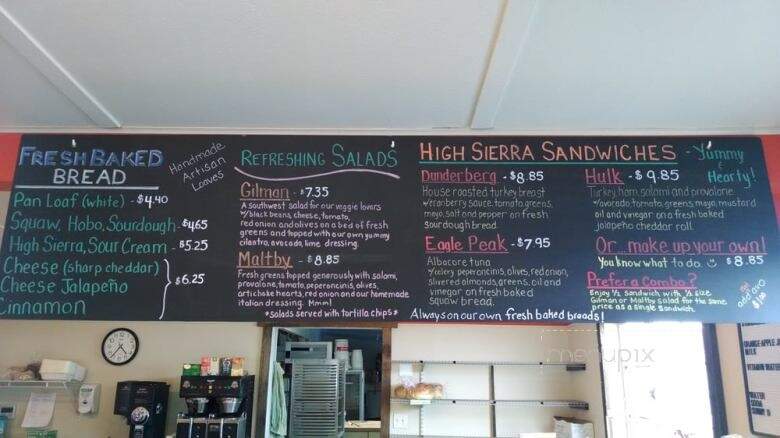 FRESH BAKED
BREAD
Handmade
Artisan
Loaves
Pan Loaf (white) - $4.40
Squaw, Hobo, Sourdough - $4.65
High Sierra, Sour Cream - $5.25
Cheese (sharp cheddar)
Cheese Jalapeño
Cinnamon
$6.25
REFRESHING SALADS
Gilman - $7.35
A southwest salad for our veggie lovers
w/black beans, cheese, tomato,
red onion and olives on a bed of fresh
greens and topped with our own yummy
cilantro, avocado, lime dressing.
Maltby - $8.85
Fresh greens topped generously with salami,
provalone, tomato, peperoncinis, olives,
artichoke hearts, red onion and our homemade
italian dressing. Mmm!
*salads served with tortilla chips*
HIGH SIERRA SANDWICHES - Yummy
&
Hearty!
Dunderberg - $8.85
House roasted turkey breast
w/cranberry sauce, tomato, greens,
mayo, salt and pepper on fresh
sourdough bread.
Eagle Peak - $7.95
Albacore tuna
w/celery, peperoncinis, olives, red onion,
slivered almonds, greens, oil and
vinegar on fresh baked
squaw bread.
Always on our own fresh baked breads!
Hulk - $9.85
Turkey, ham, salami and provalone
w/avocado, tomato, greens, mayo, mustard
oil and vinegar on a fresh baked
jalapeño cheddar roll.
Or... make up your own!
You know what to do $8.85
Prefer a Combo?
Enjoy ½ sandwich with ½ size
Gilman or Maltby salad for the same
price as a single sandwich.
add avo
ORANGE-APPLE
MILK
WATER